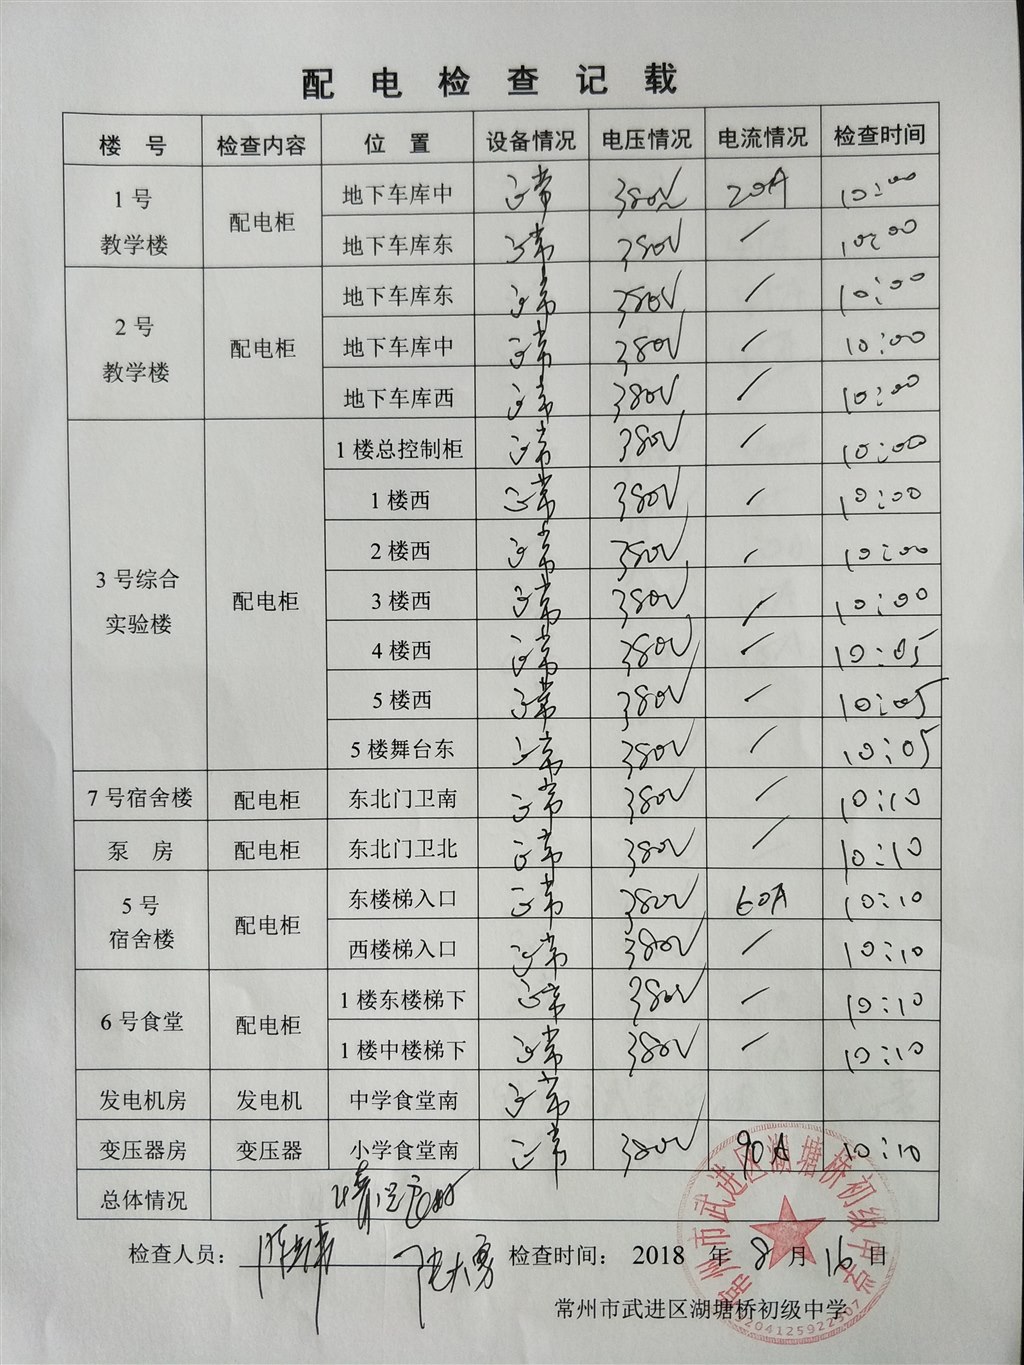 配电检查记载
楼 号 检查内容 位 置 设备情况 电压情况 电流情况 检查时间
1号教学楼 配电柜 地下车库中 正常 380V 20A 10:00
地下车库东 正常 380V / 10:00
2号教学楼 配电柜 地下车库东 正常 380V / 10:00
地下车库中 正常 380V / 10:00
地下车库西 正常 380V / 10:00
3号综合实验楼 配电柜 1楼总控制柜 正常 380V / 10:00
1楼西 正常 380V / 10:00
2楼西 正常 380V / 10:00
3楼西 正常 380V / 10:00
4楼西 正常 380V / 10:05
5楼西 正常 380V / 10:05
5楼舞台东 正常 380V / 10:05
7号宿舍楼 配电柜 东北门卫南 正常 380V / 10:10
泵 房 配电柜 东北门卫北 正常 380V / 10:10
5号宿舍楼 配电柜 东楼梯入口 正常 380V 60A 10:10
西楼梯入口 正常 380V / 10:10
6号食堂 配电柜 1楼东楼梯下 正常 380V / 10:10
1楼中楼梯下 正常 380V / 10:10
发电机房 发电机 中学食堂南 正常
变压器房 变压器 小学食堂南 正常 380V 90A 10:10
总体情况
检查人员: 检查时间: 2018 年 8 月 16 日
常州市武进区湖塘桥初级中学
常州市武进区湖塘桥初级中学